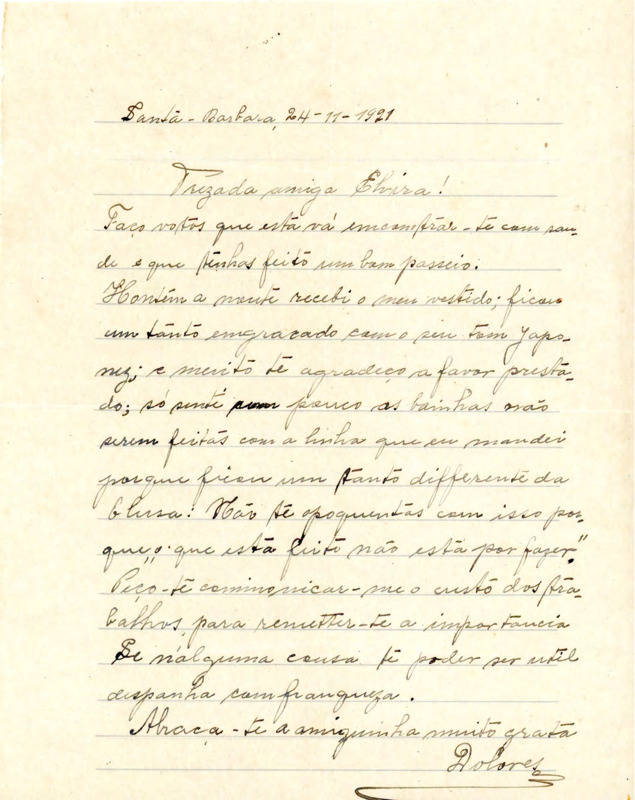 Santa - Barbara, 24-11-1921
Prezada amiga Elvira!
Faço votos que esta vá emcomtrar-te com sau-
de e que tenhas feito um bom passeio.
Hontem a noute recebi o meu vestido; ficou
um tanto emgracado com o seu tom Japo-
nez; e muito te agradeço a favor presta-
do; só senti um pouco as bainhas não
serem feitas com a linha que eu mandei
porque ficou um tanto differente da
blusa: Não te apoquentas com isso por-
que „o que está feito não está por fazer."
Peço-te comimonicar-me o custo dos tra-
balhos, para remetter-te a importancia
Se n'alguma cousa te poder ser util
despanha com franqueza.
Abraça-te a amiguinha muito grata
Dolores